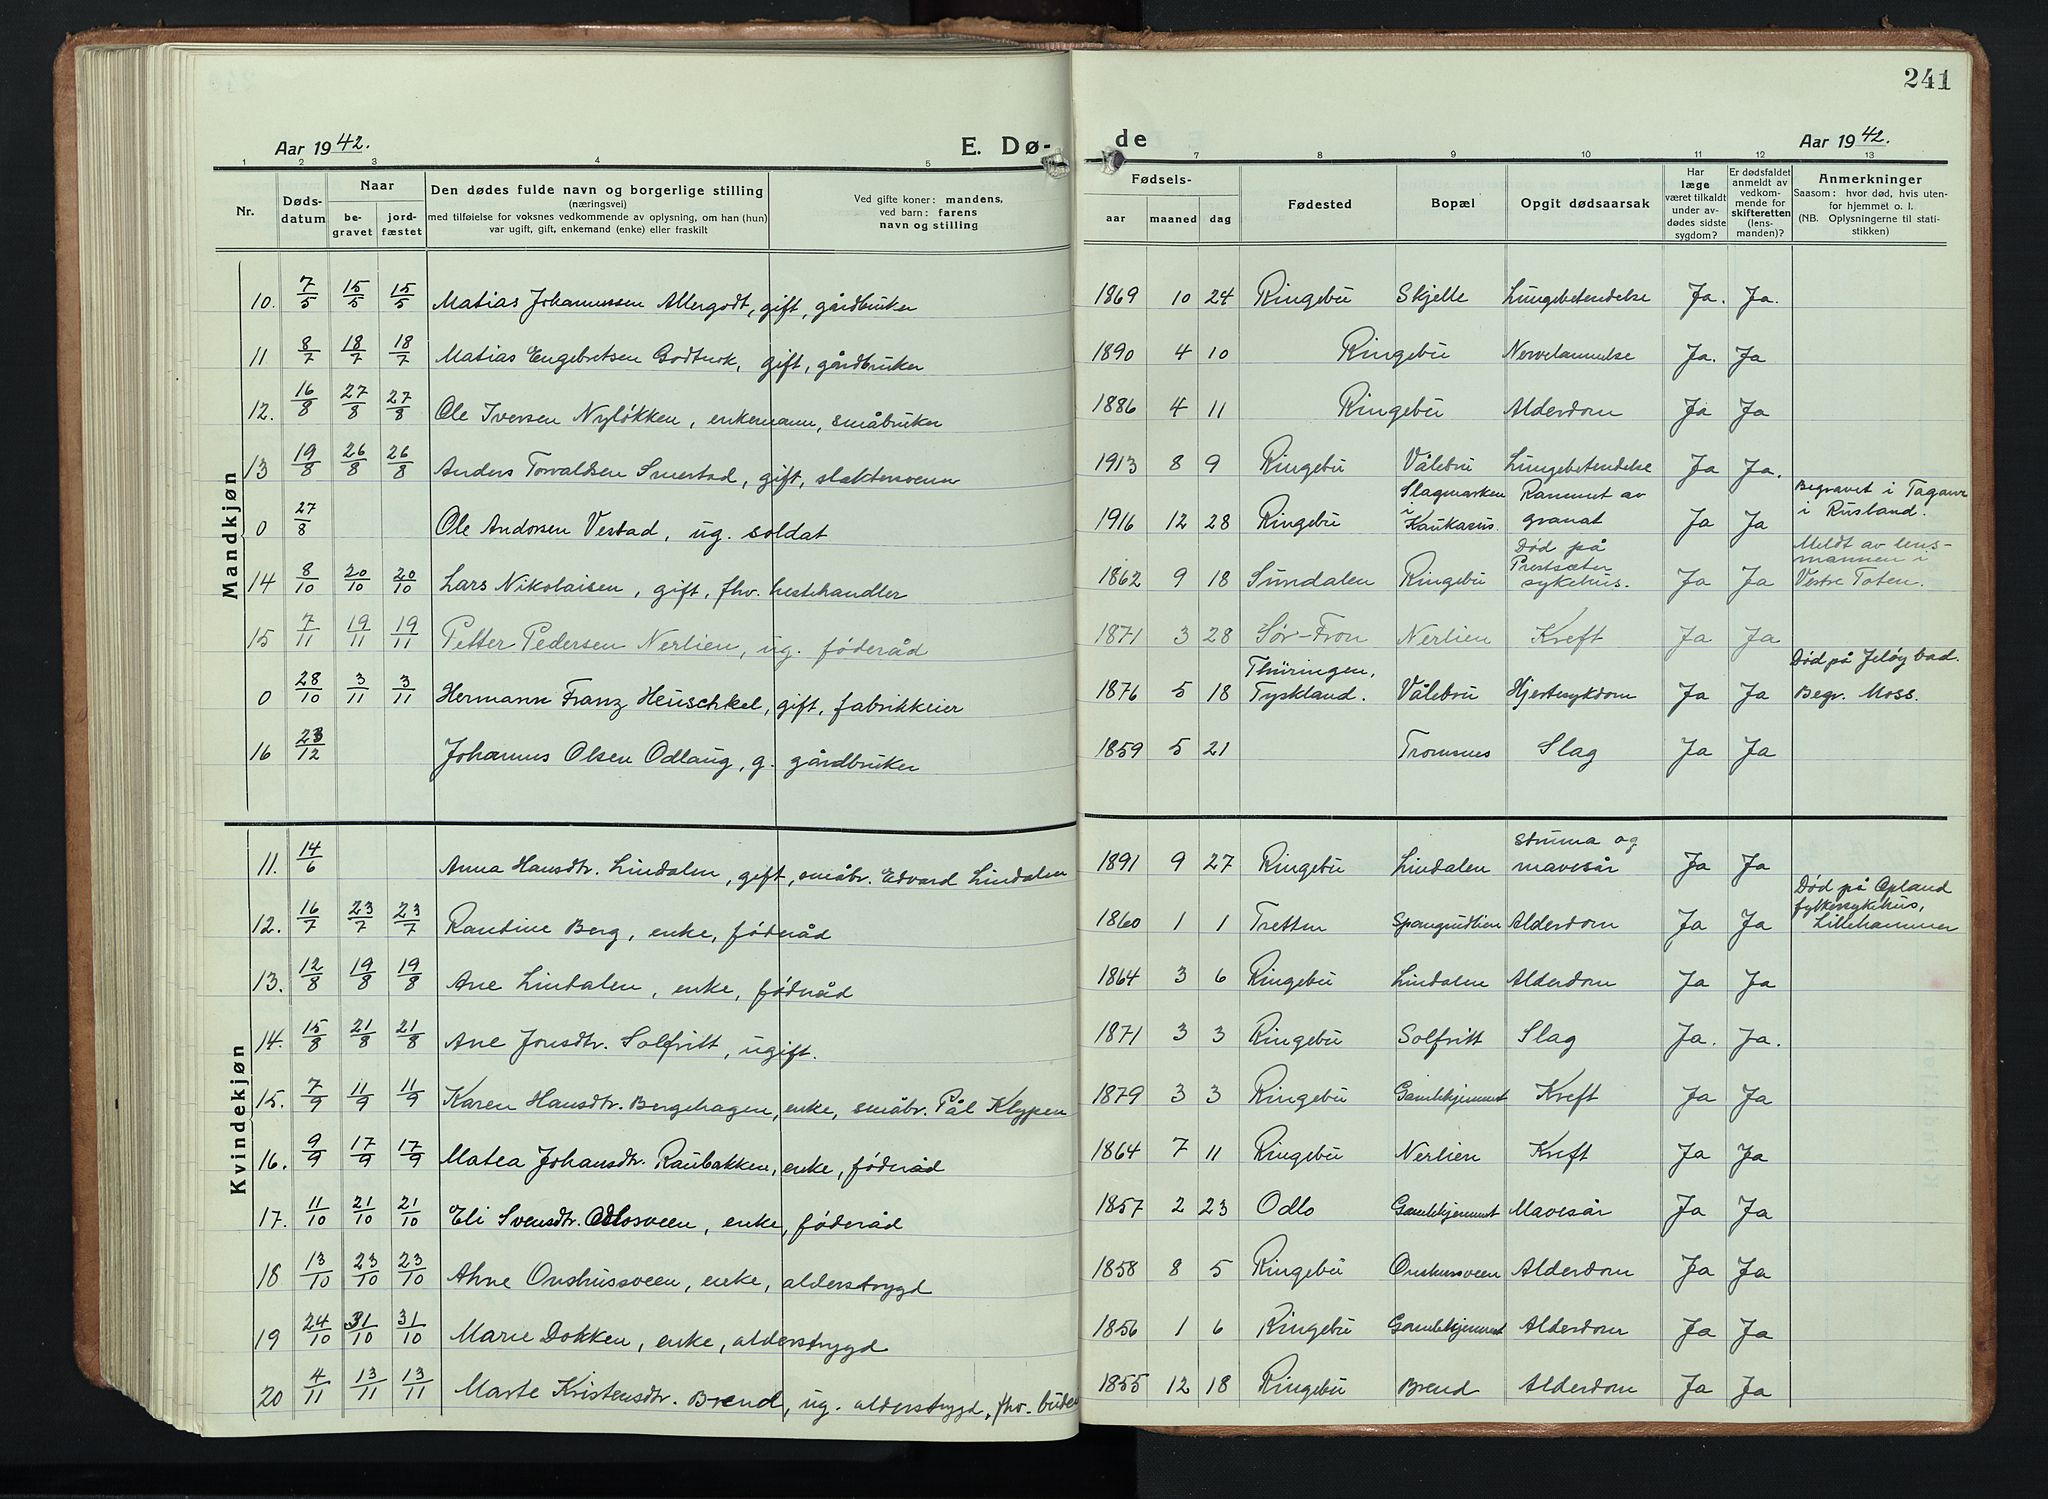 241
Aar 1942.
E. Dø-
de
Aar 1942.
1 2 3 4 5 7 8 9 10 11 12 13
Nr.
Døds-
datum
Naar
be-
gravet
jord-
fæstet
Den dødes fulde navn og borgerlige stilling
(næringsvei)
med tilføielse for voksnes vedkommende av oplysning, om han (hun)
var ugift, gift, enkemand (enke) eller fraskilt
Ved gifte koner: mandens,
ved barn: farens
navn og stilling
Fødsels-
aar maaned dag
Fødested
Bopæl
Opgit dødsaarsak
Har
læge
været tilkaldt
under av-
dødes sidste
sygdom?
Er dødsfaldet
anmeldt av
vedkom-
mende for
skifteretten
(lens-
manden)?
Anmerkninger
Saasom: hvor død, hvis uten-
for hjemmet o. l.
(NB. Oplysningerne til stati-
stikken)
Mandkjøn
10. 7/5 15/5 15/5 Matias Johannessen Allergodt, gift, gårdbruker 1869 10 24 Ringebu Skjelle Lungebetendelse Ja. Ja.
11 8/7 18/7 18/7 Matias Engebretsen Godtnok, gift, gårdbruker 1890 4 10 Ringebu Nervelammelse Ja. Ja
12. 16/8 27/8 27/8 Ole Iversen Nyløkken, enkemann, småbruker 1886 4 11 Ringebu Alderdom Ja Ja
13 19/8 26/8 26/8 Anders Torvaldsen Smestad, gift, slaktersvenn 1913 8 9 Ringebu Vålebru Lungebetendelse Ja Ja.
0 27/8 Ole Andersen Vestad, ug. soldat 1916 12 28 Ringebu Slagmarken i Kaukasus. Rammet av granat Ja Ja Begravet i Taganr i Rusland.
14 8/10 20/10 20/10 Lars Nikolaisen, gift, fhv. hestehandler 1862 9 18 Sundalen Ringebu Død på Prestsæter sykehus. Ja Ja Meldt av lens-mannen i Vestre Toten.
15 7/11 19/11 19/11 Petter Pedersen Nerlien, ug. føderåd 1871 3 28 Sør-Fron Nerlien Kreft Ja Ja
0 28/10 3/11 3/11 Hermann Franz Heuschkel, gift, fabrikkeier 1876 5 18 Thüringen, Tyskland. Vålebru Hjertesykdom Ja Ja Død på Jeløy bad. Begr. Moss.
16 23/12 Johannes Olsen Odlaug, g. gårdbruker 1859 5 21 Tromsnes Slag Ja Ja
Kvindekjøn
11. 14/6 Anna Hansdtr. Lindalen, gift, småbr. Edvard Lindalen 1891 9 27 Ringebu Lindalen Struma og mavesår Ja Ja
12. 16/7 23/7 23/7 Rantine Berg, enke, føderåd 1860 1 1 Tretten Spangrudlien Alderdom Ja Ja Død på Opland fylkessykehus, Lillehammer
13. 12/8 19/8 19/8 Ane Lindalen, enke, føderåd 1864 3 6 Ringebu Lindalen Alderdom Ja Ja
14. 15/8 21/8 21/8 Ane Jonsdtr. Solfritt, ugift. 1871 3 3 Ringebu Solfritt Slag Ja. Ja.
15. 7/9 11/9 11/9 Karen Hansdtr. Bergehagen, enke, småbr. Pål Klypen 1879 3 3 Ringebu Gamlehjemmet Kreft Ja Ja
16. 9/9 17/9 17/9 Matea Johansdtr. Raubakken, enke, føderåd 1864 7 11 Ringebu Nerlien Kreft Ja Ja
17. 11/10 21/10 21/10 Eli Svensdtr. Odlosveen, enke, føderåd 1857 2 23 Odlo Gamlehjemmet Mavesår Ja Ja
18 13/10 23/10 23/10 Ahne Onshussveen, enke, alderstrygd 1858 8 5 Ringebu Onshussveen Alderdom Ja Ja
19 24/10 31/10 31/10 Marie Dokken, enke, alderstrygd 1856 1 6 Ringebu Gamlehjemmet Alderdom Ja Ja
20 4/11 13/11 13/11 Marte Kristensdtr. Brend, ug. alderstrygd, fhv. budei 1855 12 18 Ringebu Brend Alderdom Ja Ja